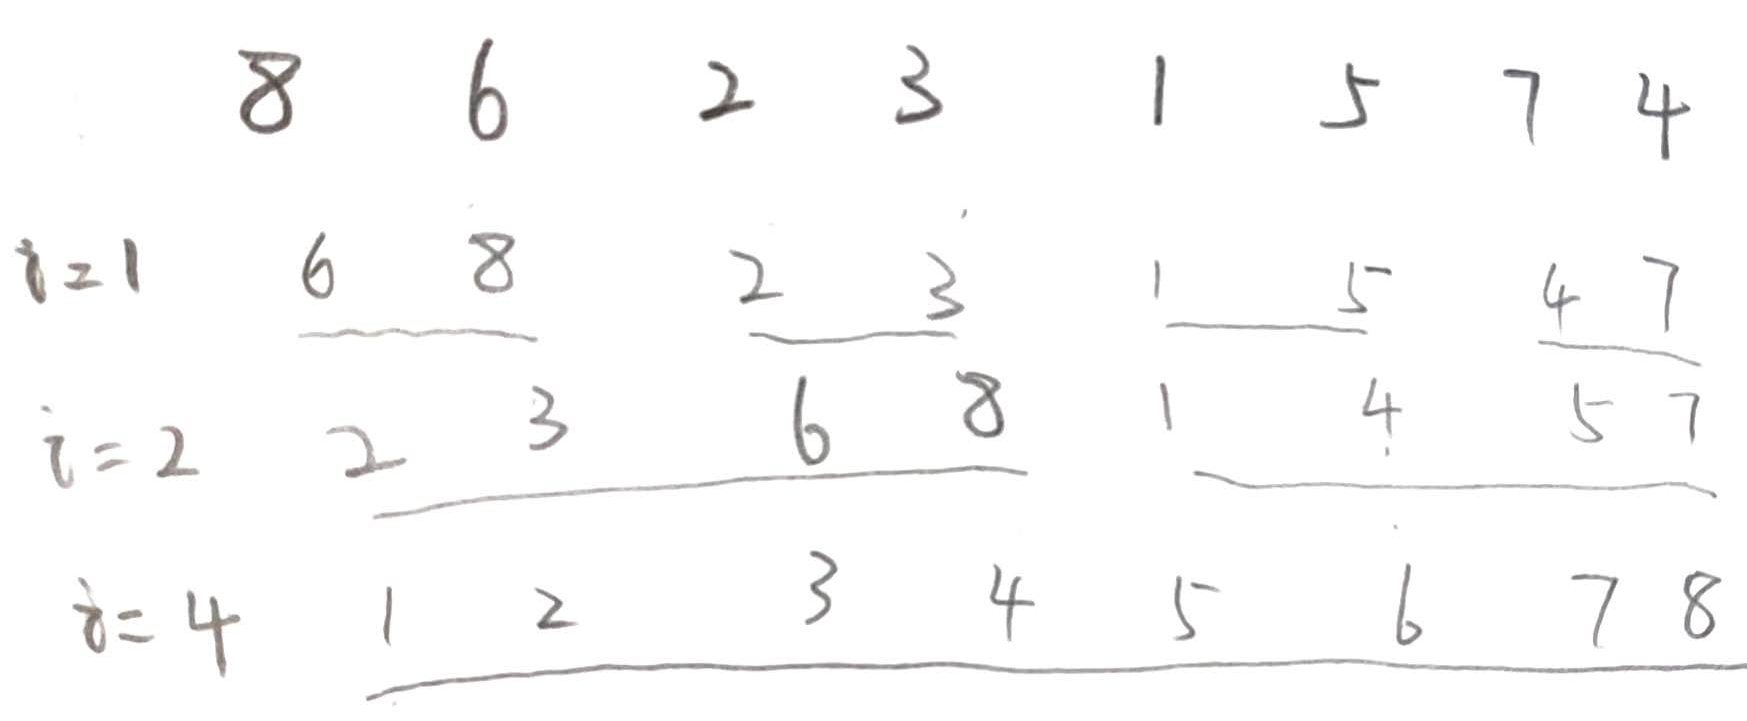 8 6 2 3 1 5 7 4
i=1 6 8 2 3 1 5 4 7
i=2 2 3 6 8 1 4 5 7
i=4 1 2 3 4 5 6 7 8